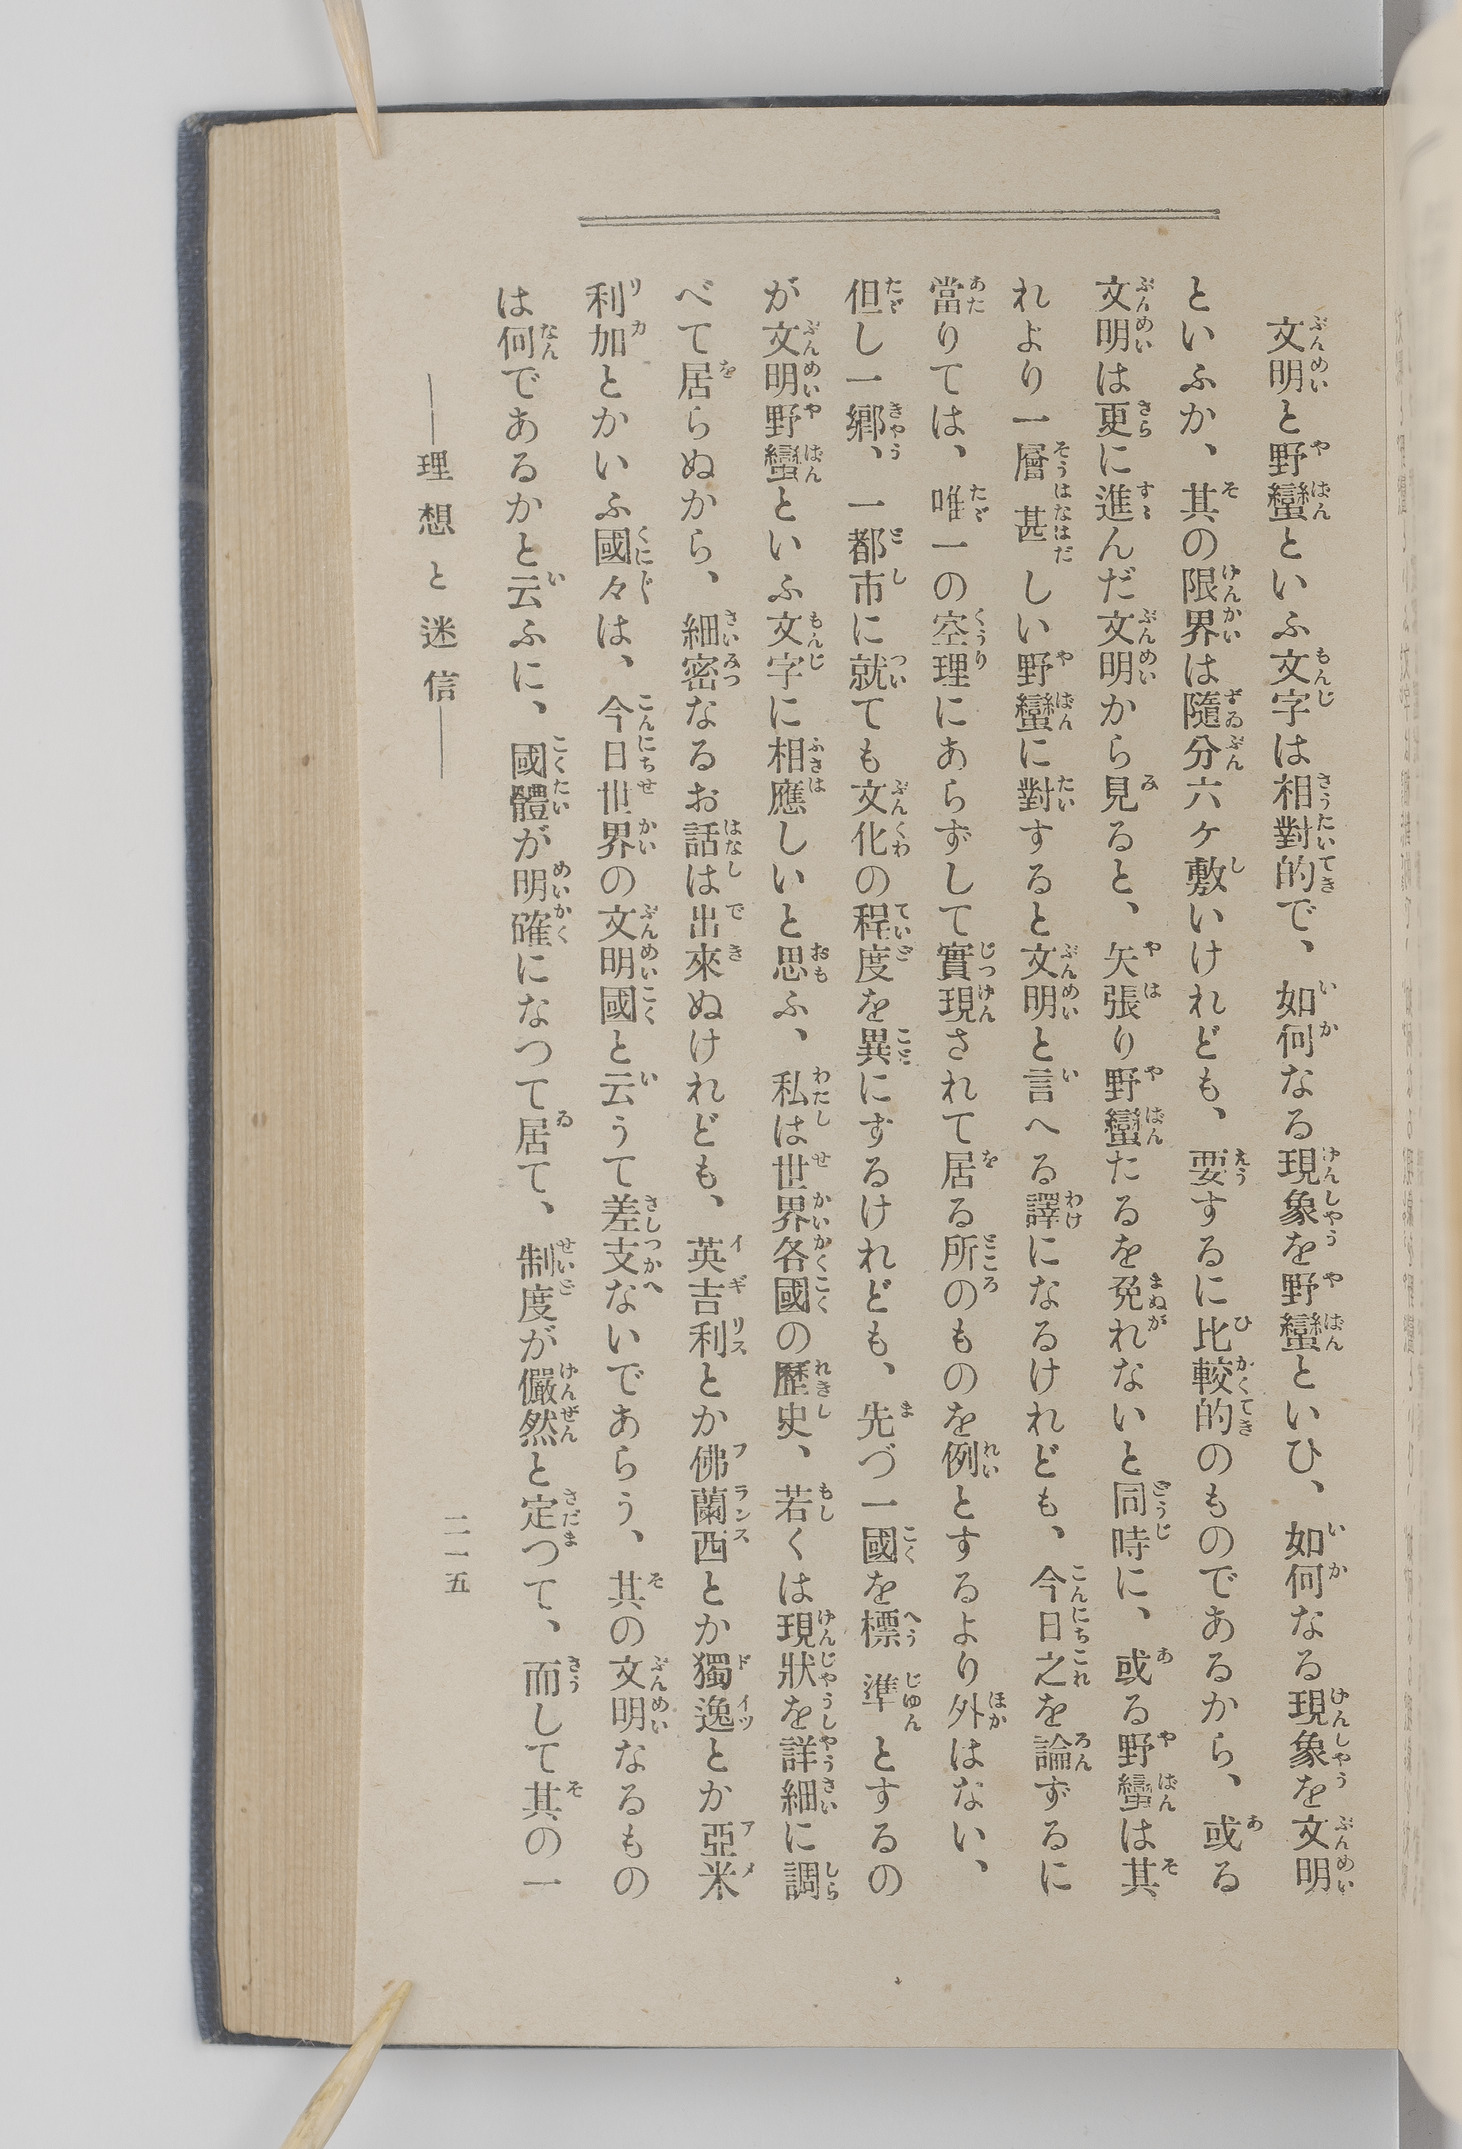 文明と野蠻といふ文字は相對的で、如何なる現象を野蠻といひ、如何なる現象を文明
といふか、其の限界は隨分六ヶ敷いけれども、要するに比較的のものであるから、或る
文明は更に進んだ文明から見ると、矢張り野蠻たるを免れないと同時に、或る野蠻は其
れより一層甚しい野蠻に對すると文明と言へる譯になるけれども、今日之を論ずるに
當りては、唯一の空理にあらずして實現されて居る所のものを例とするより外はない、
但し一鄕、一都市に就ても文化の程度を異にするけれども、先づ一國を標準とするの
が文明野蠻といふ文字に相應しいと思ふ、私は世界各國の歷史、若くは現狀を詳細に調
べて居らぬから、細密なるお話は出來ぬけれども、英吉利とか佛蘭西とか獨逸とか亞米
利加とかいふ國々は、今日世界の文明國と云うて差支ないであらう、其の文明なるもの
は何であるかと云ふに、國體が明確になつて居て、制度が儼然と定つて、而して其の一
――理想と迷信――
二一五